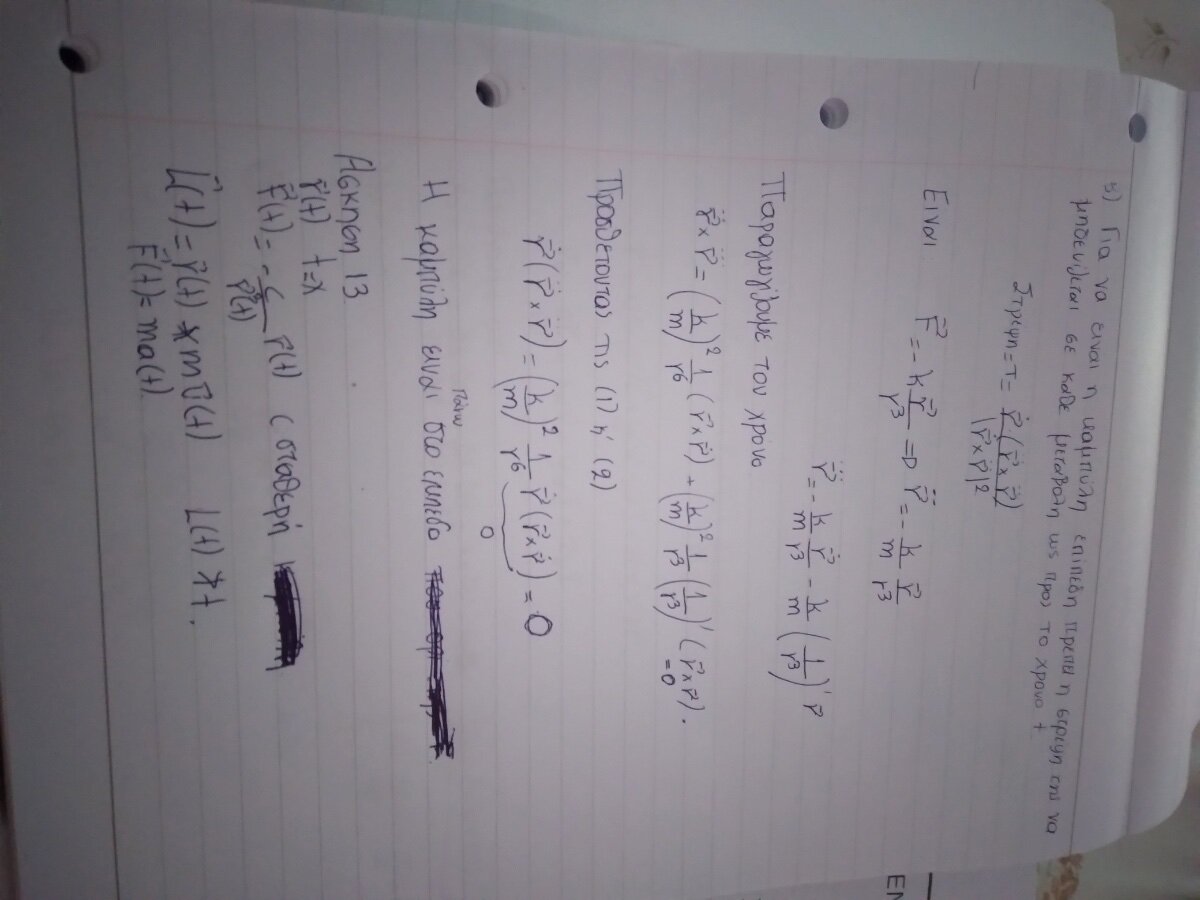 3) Για να ειναι η καμπύλη επιπεδη πρεπει η στρεψη της να
μηδενιζεται σε καθε μεταβολη ως προς το χρονο t
Στρεψη = τ = \dot{\vec{r}}(\ddot{\vec{r}} x \dddot{\vec{r}}) / |\dot{\vec{r}} x \ddot{\vec{r}}|²
Ειναι: \vec{F} = -k \vec{r}/r³ => \ddot{\vec{r}} = -k/m \vec{r}/r³
\dddot{\vec{r}} = -k/m \dot{\vec{r}}/r³ - k/m (1/r³)' \vec{r}
Παραγωγιζουμε τον χρόνο
\ddot{\vec{r}} x \dddot{\vec{r}} = (k/m)² 1/r⁶ (\vec{r} x \dot{\vec{r}}) + (k/m)² 1/r³ (1/r³)' (\vec{r} x \vec{r}).
=0
Προσθετοντας τις (1) κ' (2)
\dot{\vec{r}}(\ddot{\vec{r}} x \dddot{\vec{r}}) = (k/m)² 1/r⁶ \dot{\vec{r}}(\vec{r} x \dot{\vec{r}}) = 0
0
πανω
Η καμπύλη ειναι στο επιπεδο
Ασκηση 13
\vec{r}(t) t=x
\vec{F}(t) = -c/r³(t) r(t) C σταθερή
\vec{L}(t) = \vec{r}(t) * m\vec{υ}(t) L(t) * t.
\vec{F}(t) = ma(t)
EN